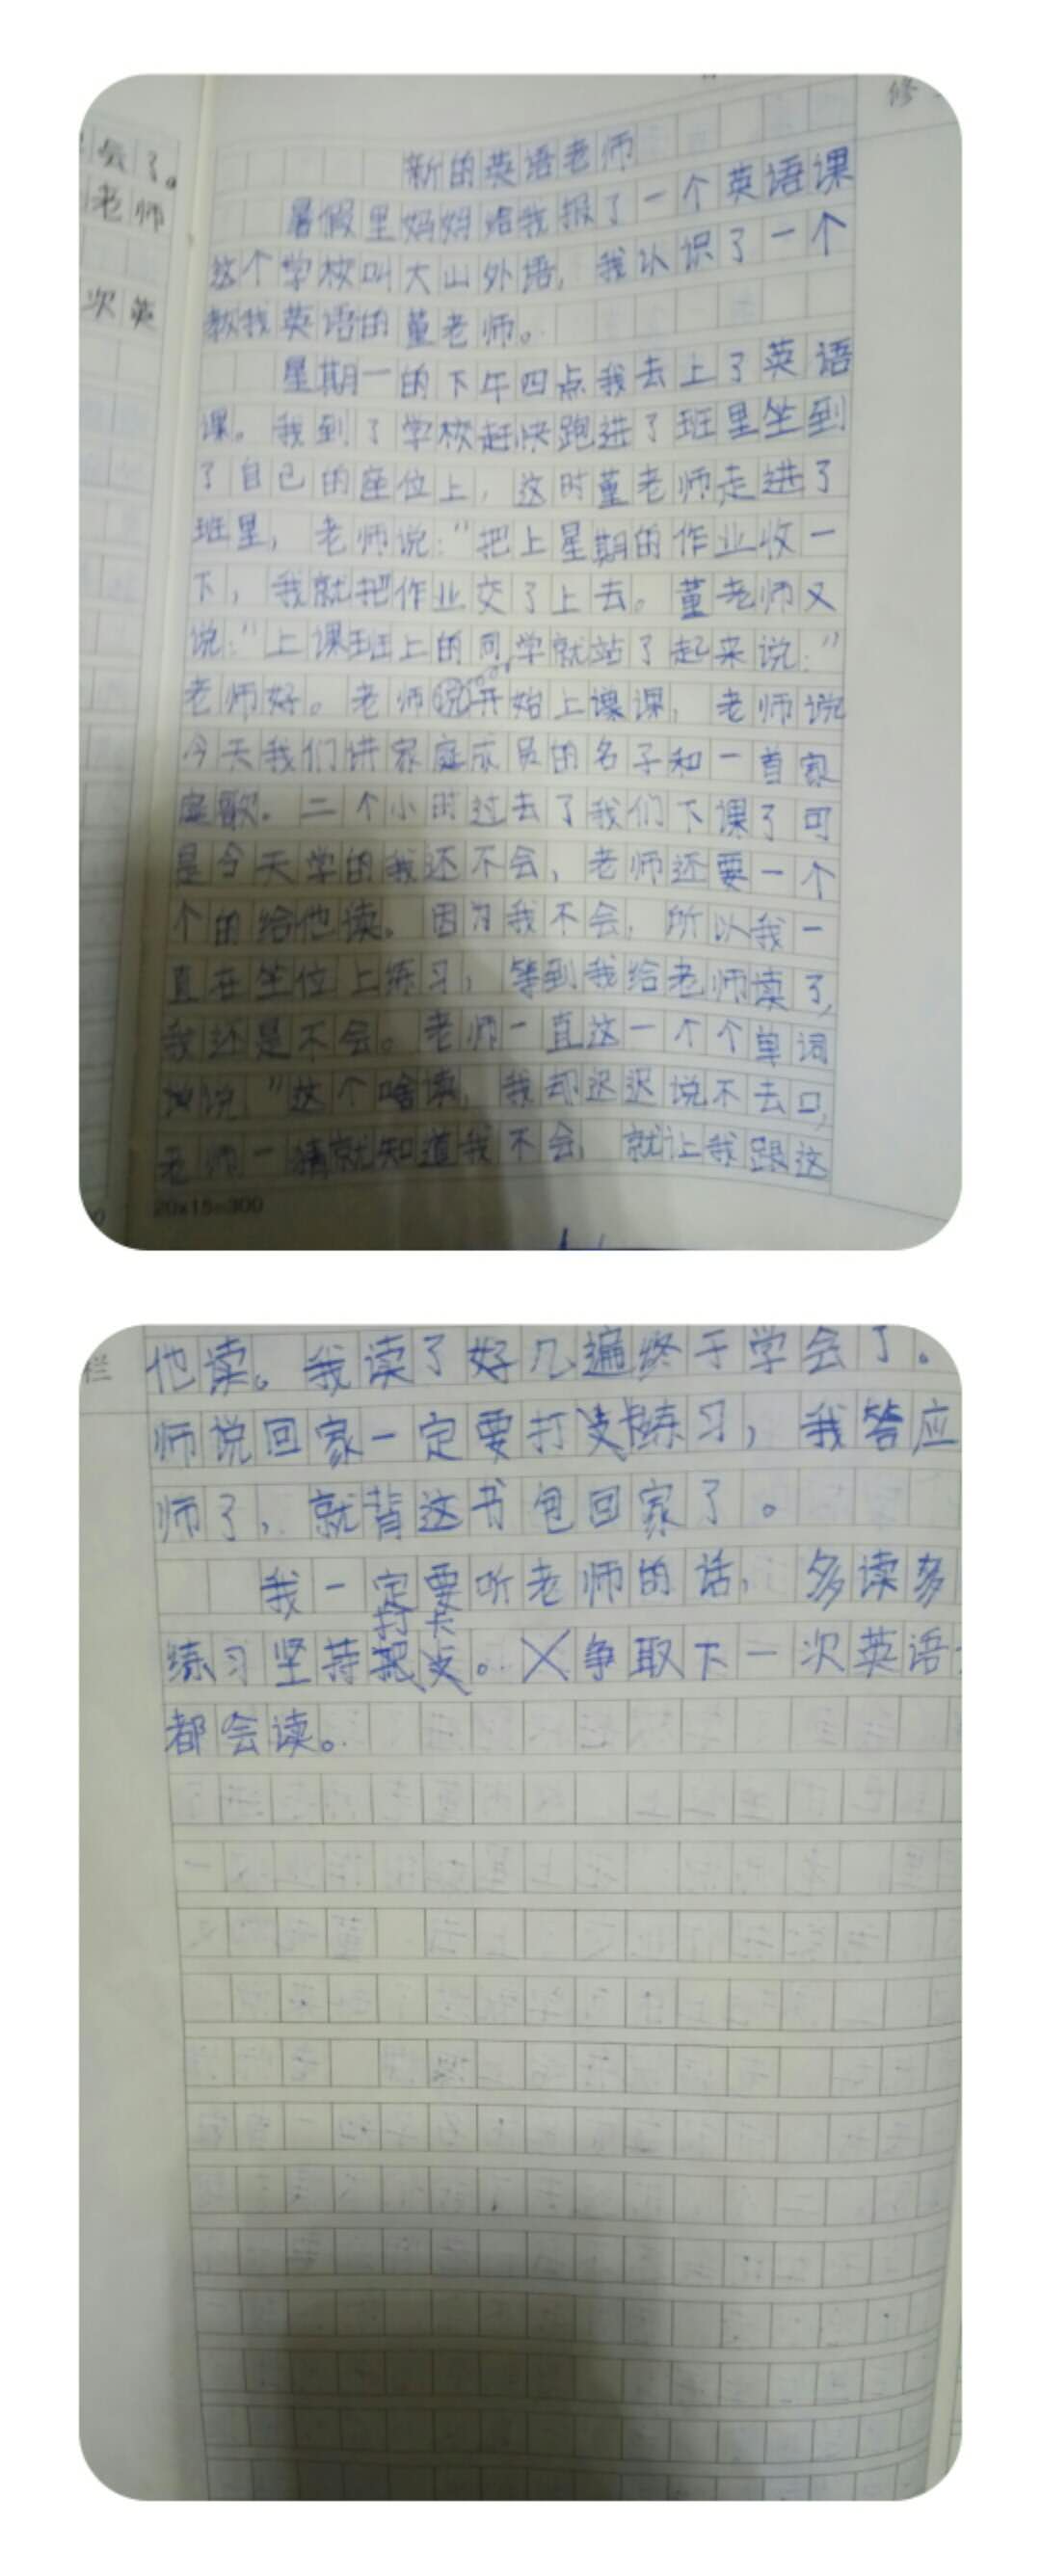 修
会了。
老师
次英
新的英语老师
暑假里妈妈给我报了一个英语课
这个学校叫大山外语，我认识了一个
教我英语的董老师。
星期一的下午四点我去上了英语
课。我到了学校赶快跑进了班里坐到
了自己的座位上，这时董老师走进了
班里，老师说："把上星期的作业收一
下，我就把作业交了上去。董老师又
说："上课班上的同学就站了起来说："
老师好。老师说开始上课课，老师说
今天我们讲家庭成员的名子和一首家
庭歌。二个小时过去了我们下课了可
是今天学的我还不会，老师还要一个
个的给他读。因为我不会，所以我一
直在坐位上练习，等到我给老师读了，
我还是不会。老师一直这一个个单词
说"这个啥读，我却迟迟说不去口，
老师一猜就知道我不会，就让我跟这
20×15=300
栏
他读。我读了好几遍终于学会了。
师说回家一定要打卡练习，我答应
师了，就背这书包回家了。
我一定要听老师的话，多读多
打卡
练习坚持。争取下一次英语
都会读。